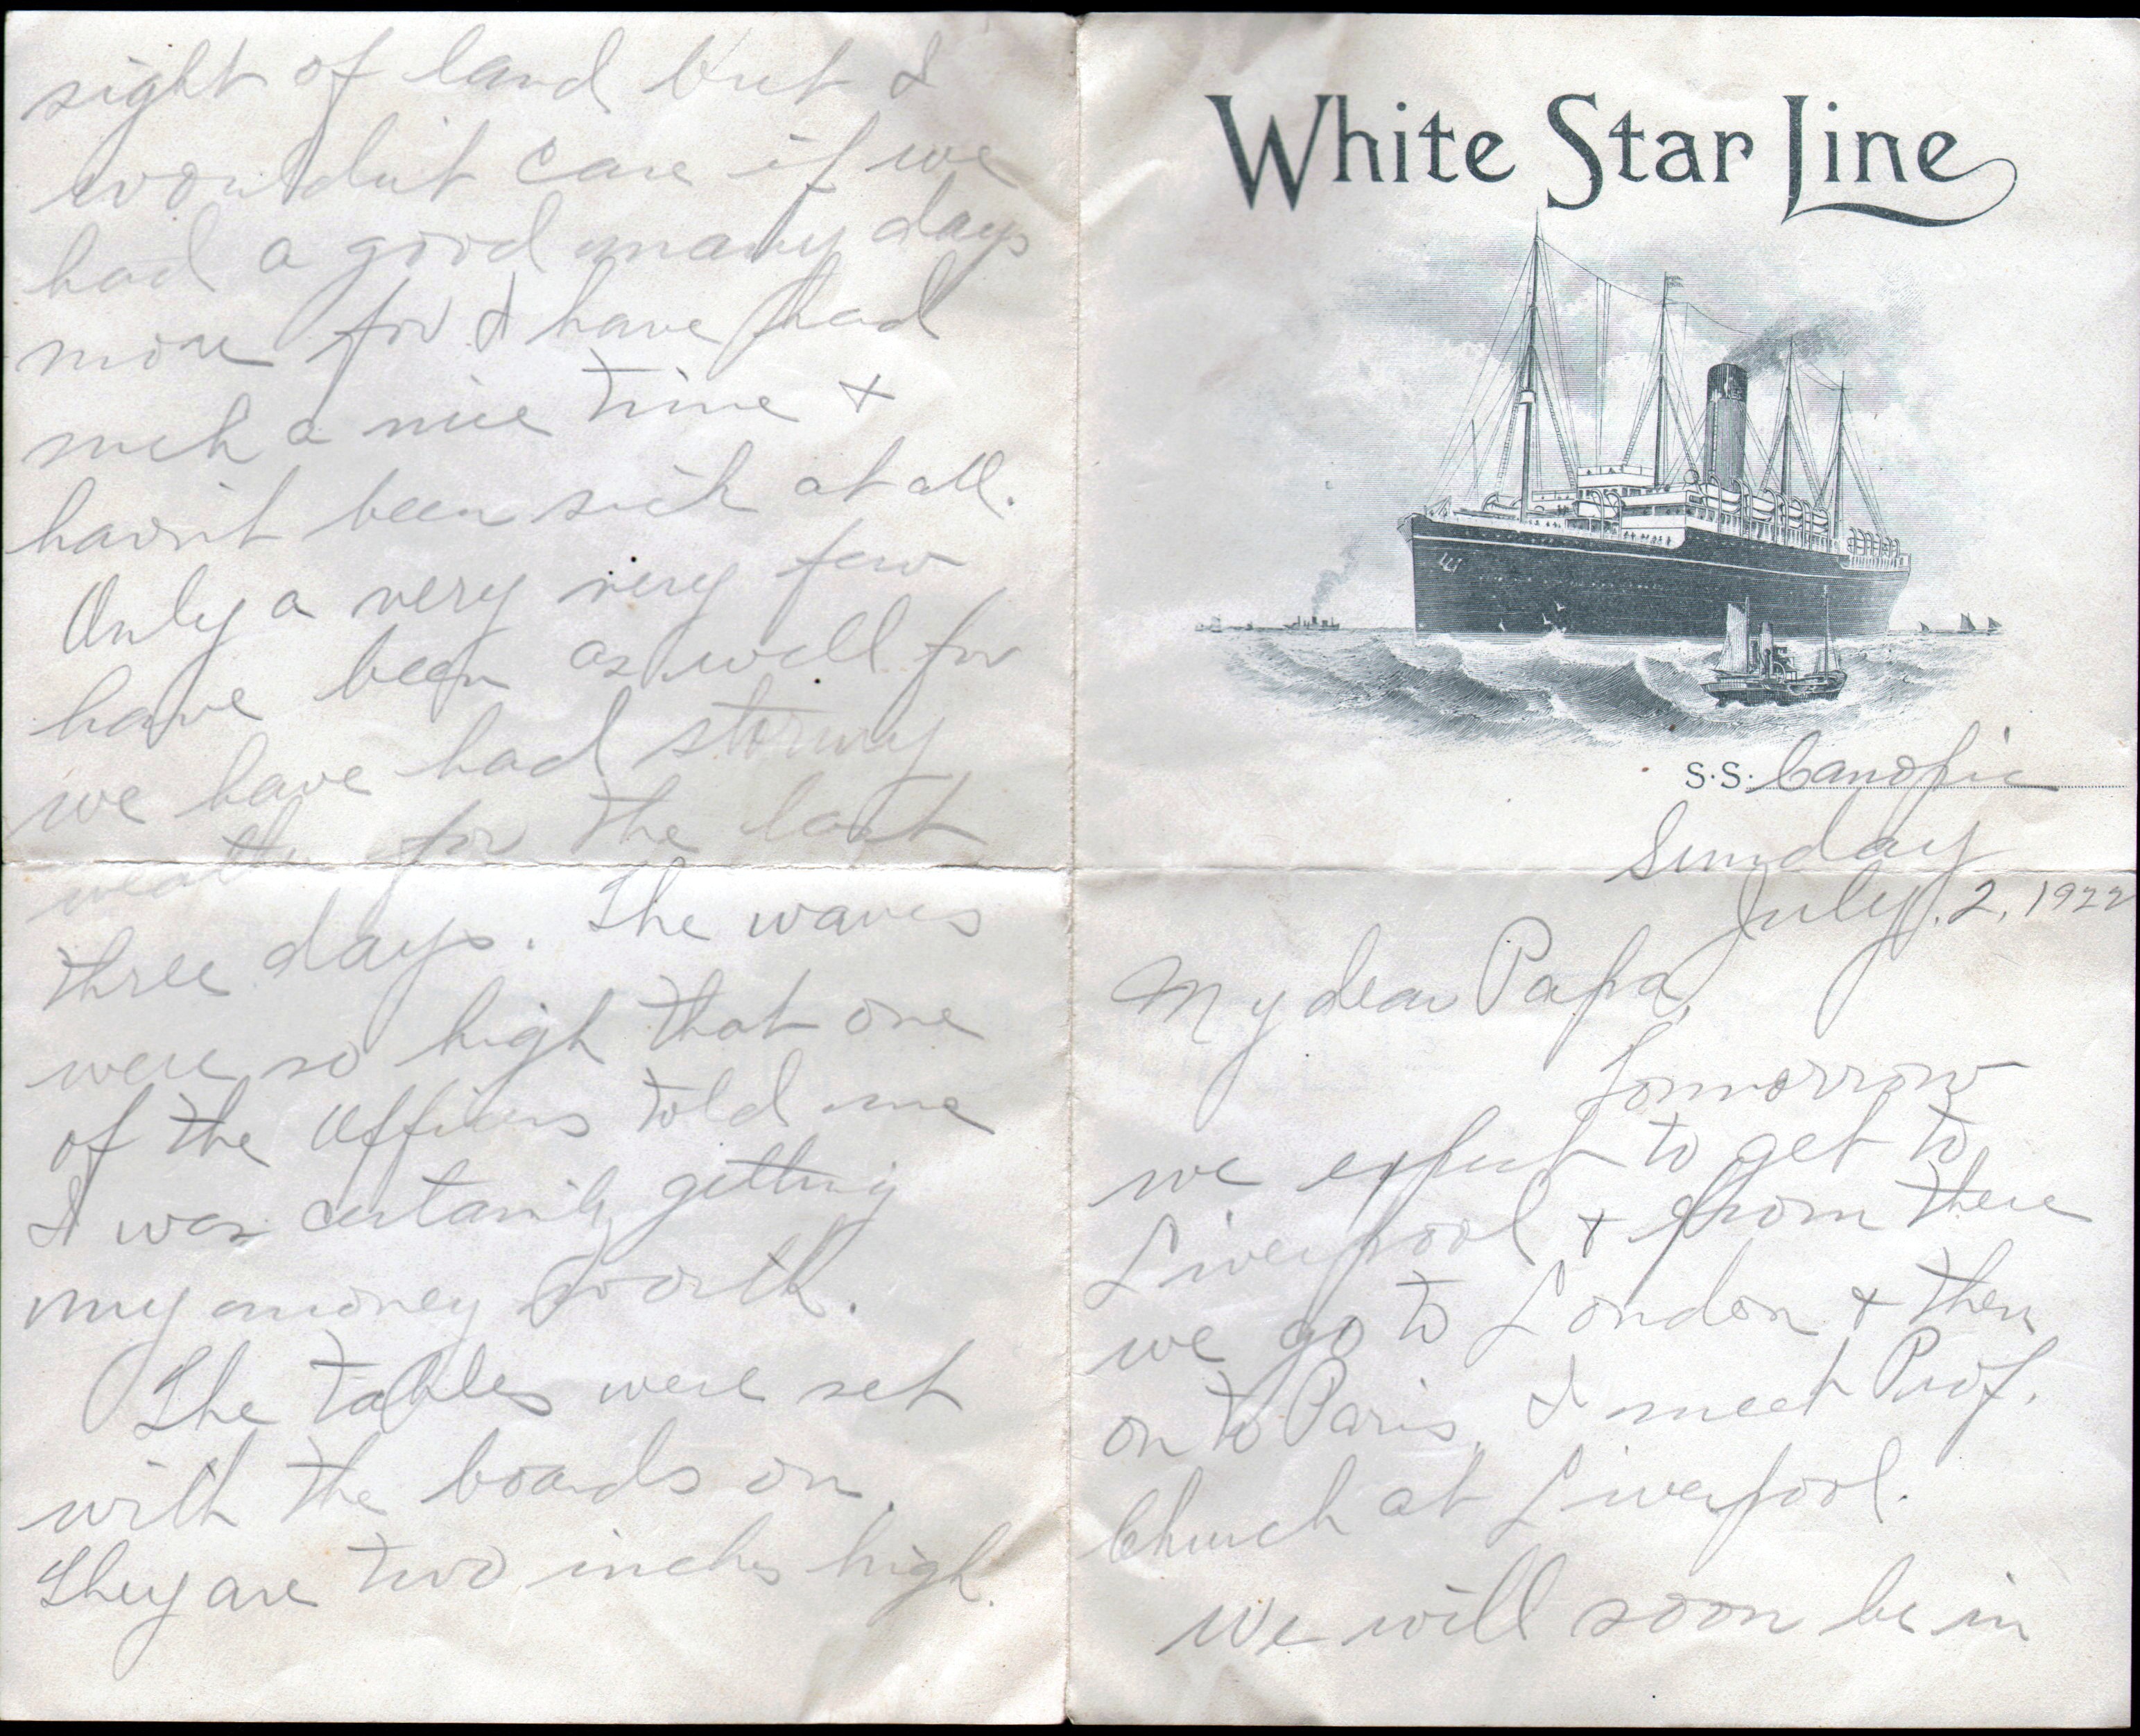 White Star Line
S.S. Canopic
Sunday
July. 2, 1922
My dear Papa,
Tommorrow
we expect to get to
Liverpool + from there
we go to London + then
on to Paris. I meet Prof.
Church at Liverpool.
We will soon be in
sight of land but I
wouldn't care if we
had a good many days
more for I have had
such a nice time +
havn't been sick at all.
Only a very very few
have been as well for
we have had stormy
weather for the last
three days. The waves
were so high that one
of the officers told me
I was certainly getting
my money worth.
The tables were set
with the boards on.
They are two inches high.